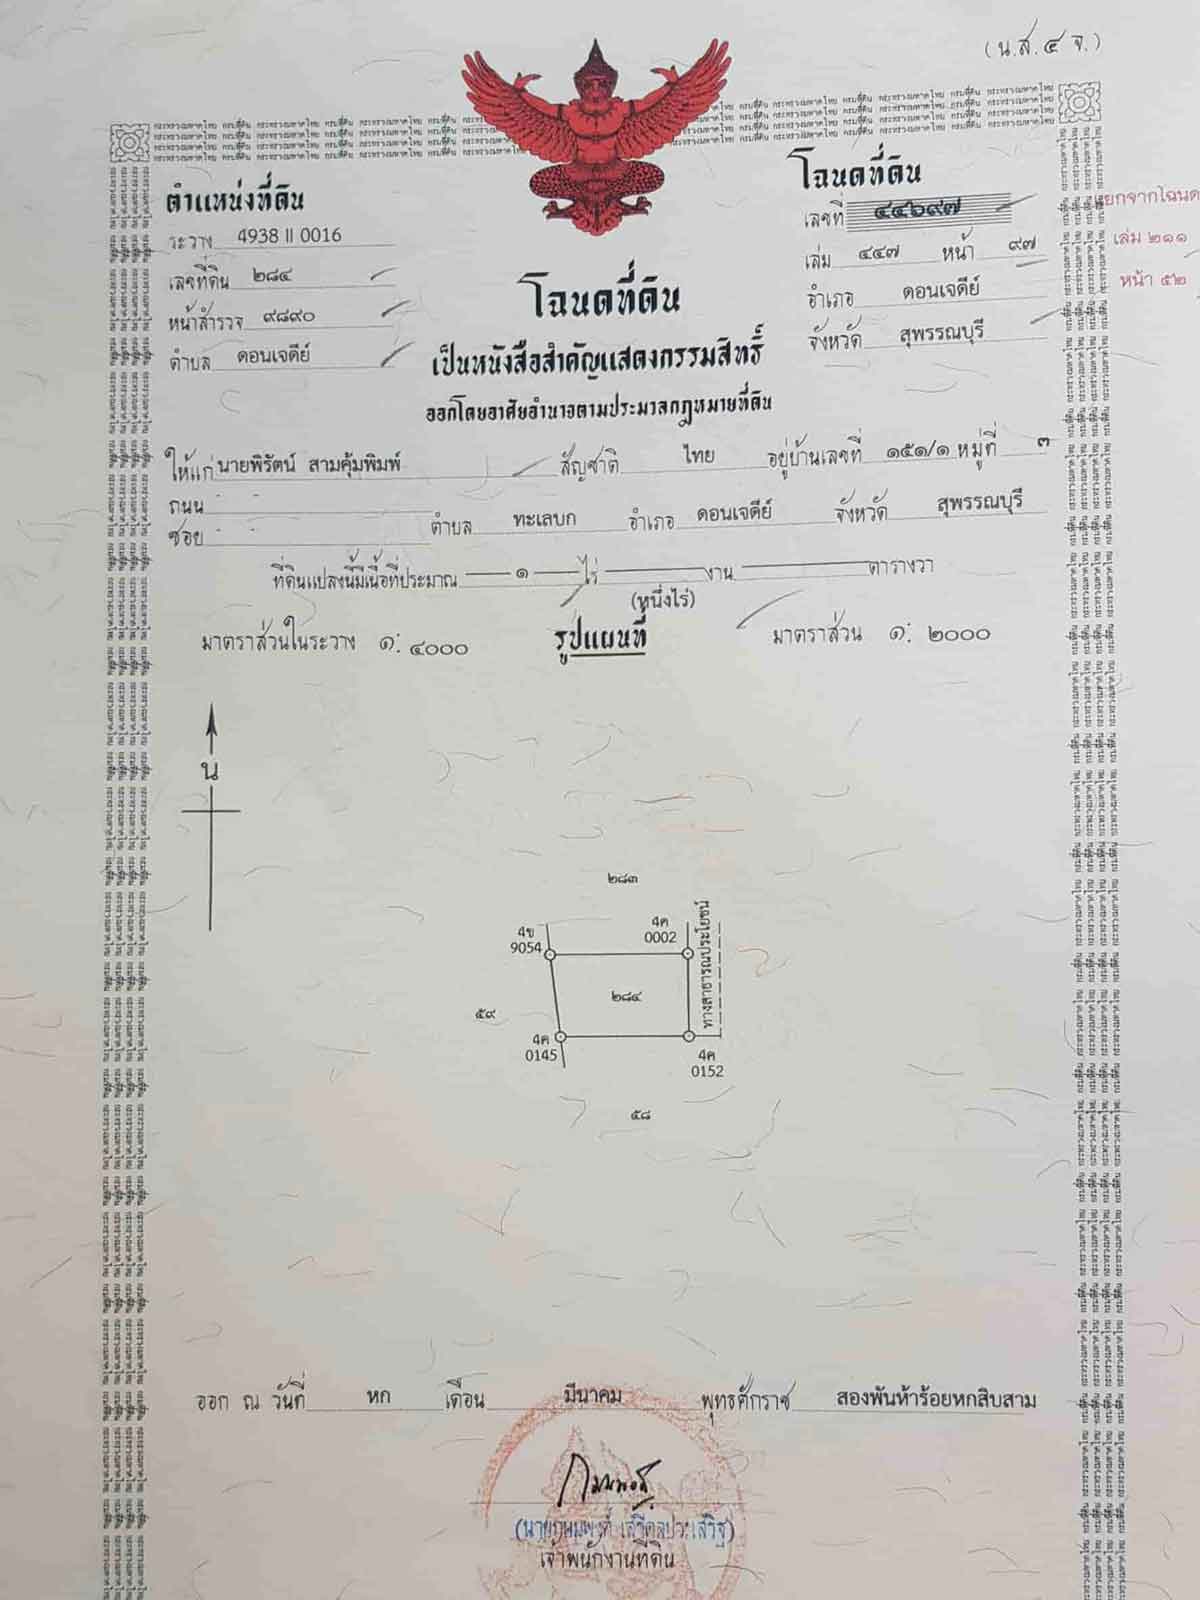 (น.ส.๔ จ.)
ตำแหน่งที่ดิน
ระวาง 4938 II 0016
เลขที่ดิน ๒๘๔
หน้าสำรวจ ๙๘๙๐
ตำบล ดอนเจดีย์
โฉนดที่ดิน
เลขที่ ๔๔๖๙๗
เล่ม ๔๔๗ หน้า ๙๗
อำเภอ ดอนเจดีย์
จังหวัด สุพรรณบุรี
แยกจากโฉนด
เล่ม ๒๑๑
หน้า ๕๒
โฉนดที่ดิน
เป็นหนังสือสำคัญแสดงกรรมสิทธิ์
ออกโดยอาศัยอำนาจตามประมวลกฎหมายที่ดิน
ให้แก่ นายพิรัตน์ สามคุ้มพิมพ์ สัญชาติ ไทย อยู่บ้านเลขที่ ๑๕๑/๑ หมู่ที่ ๓
ถนน -
ซอย - ตำบล ทะเลบก อำเภอ ดอนเจดีย์ จังหวัด สุพรรณบุรี
ที่ดินแปลงนี้มีเนื้อที่ประมาณ ๑ ไร่ งาน ตารางวา
(หนึ่งไร่)
มาตราส่วนในระวาง ๑: ๔๐๐๐ รูปแผนที่ มาตราส่วน ๑: ๒๐๐๐
น
๒๘๓
4ข
9054
4ค
0002
ทางสาธารณประโยชน์
๒๘๔
๕๙
4ค
0145
4ค
0152
๕๘
ออก ณ วันที่ หก เดือน มีนาคม พุทธศักราช สองพันห้าร้อยหกสิบสาม
เจ้าพนักงานที่ดิน